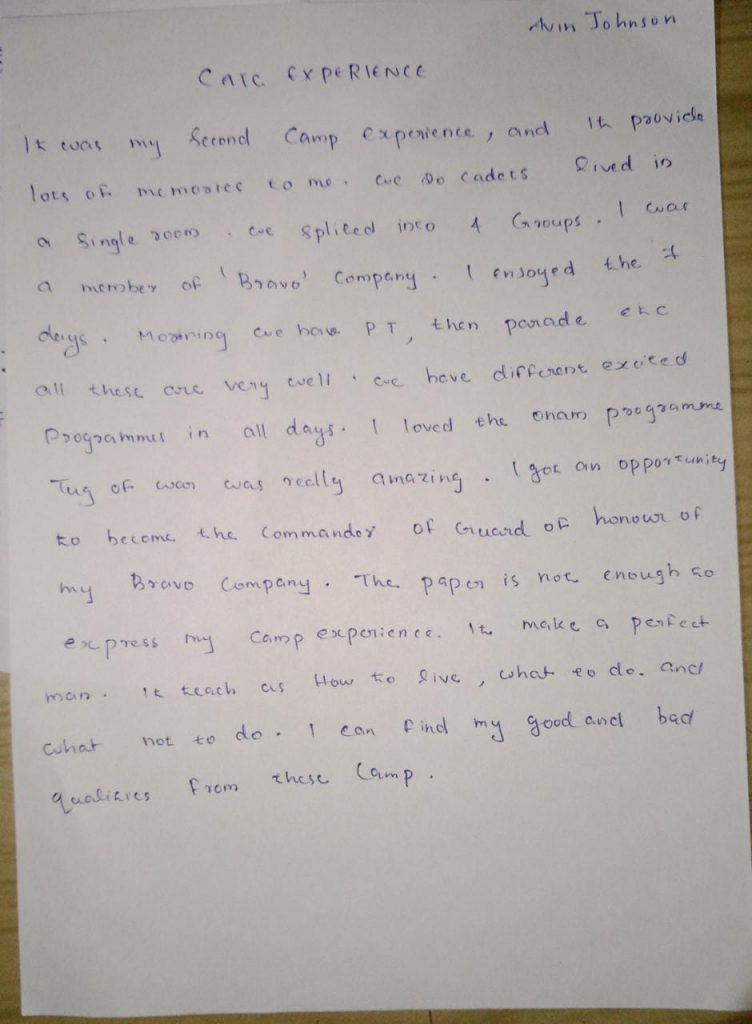 Alvin Johnson
CATC EXPERIENCE
It was my Second Camp experience, and It provide
lots of memories to me. we 50 cadets lived in
a Single room. we splited into 4 Groups. I was
a member of 'Bravo' Company. I enjoyed the 7
days. Morning we have PT, then parade etc
all these are very well. we have different excited
Programmes in all days. I loved the onam programme
Tug of war was really amazing. I got an opportunity
to become the Commander of Guard of honour of
my Bravo Company. The paper is not enough to
express my Camp experience. It make a perfect
man. It teach us How to live, what to do. and
what not to do. I can find my good and bad
qualities from these Camp.